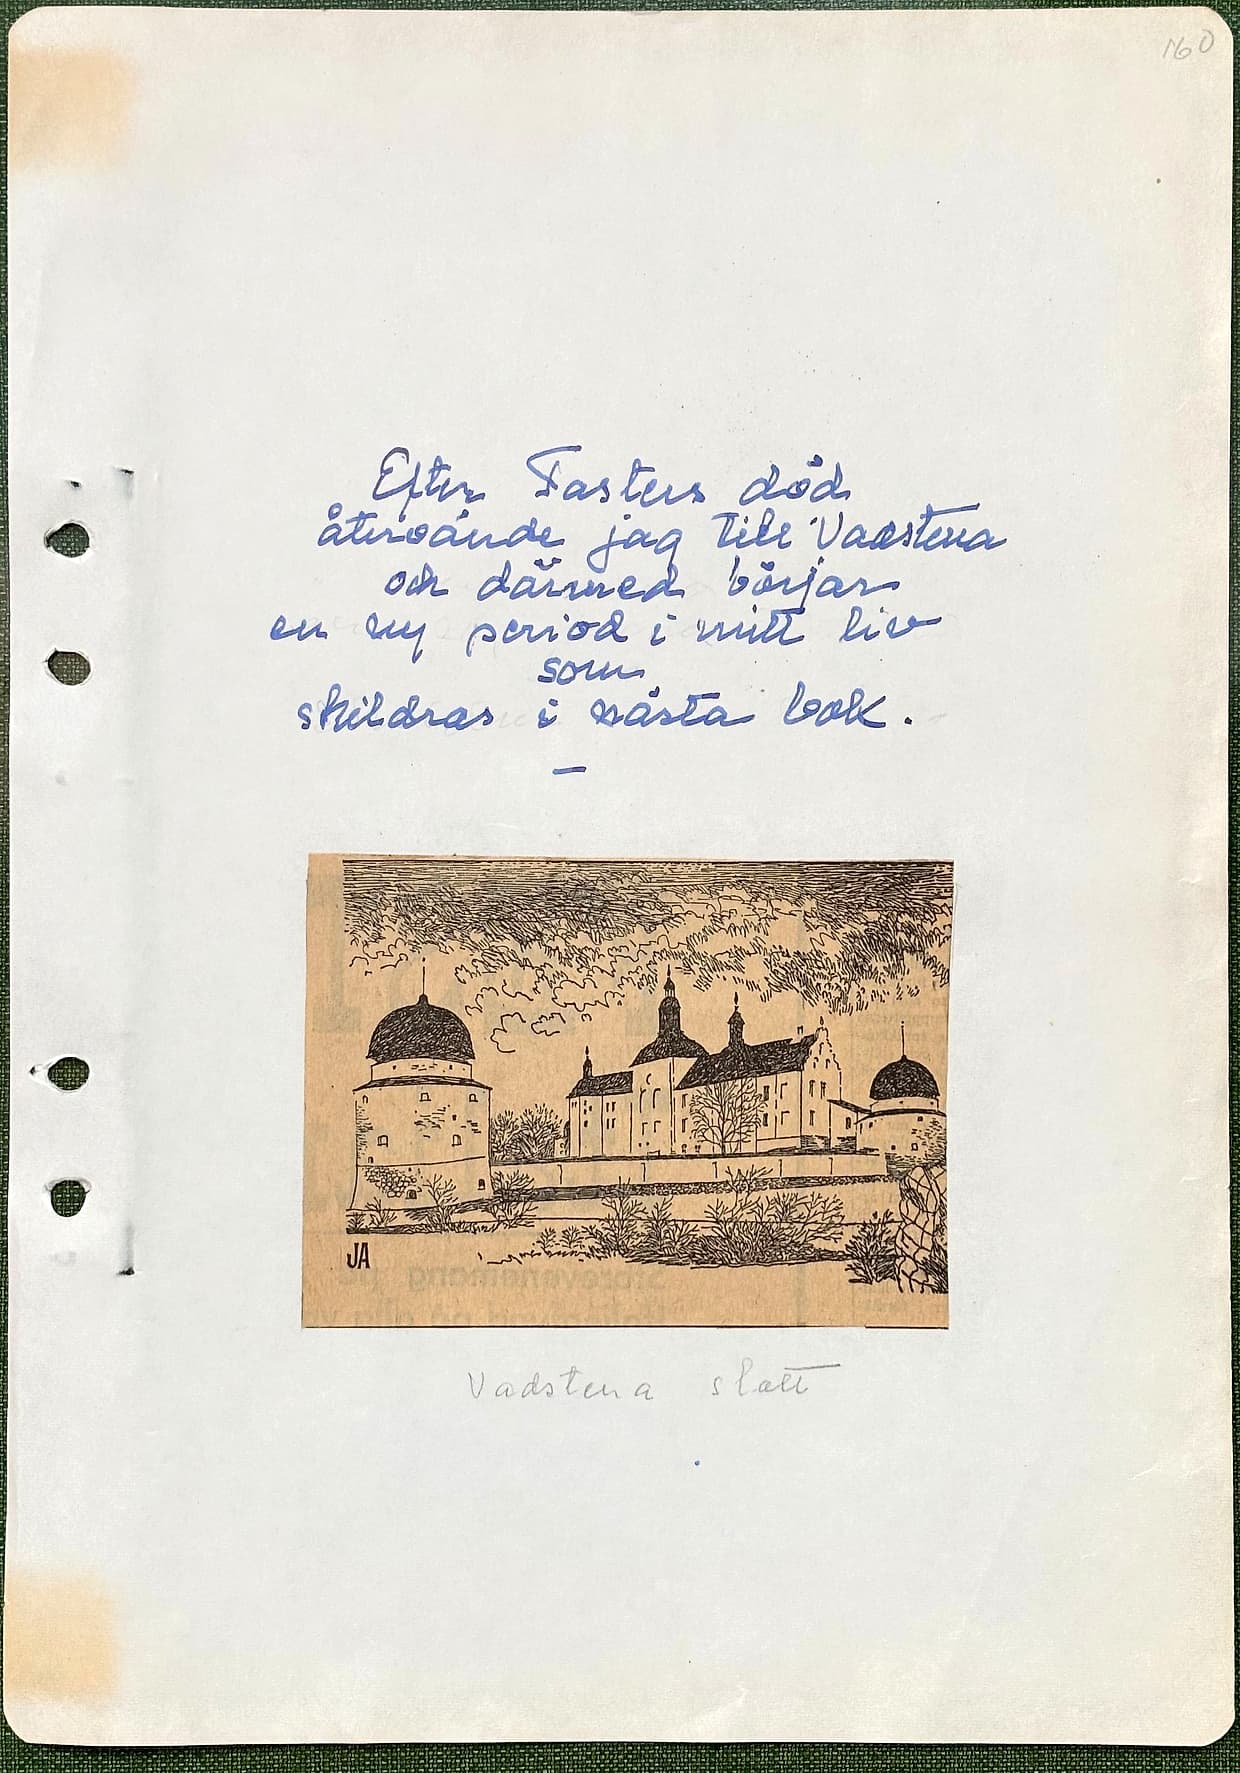 160
Efter Fasters död
återvände jag till Vadstena
och därmed börjar
en ny period i mitt liv
som
skildras i nästa bok.
–
JA
Vadstena slott